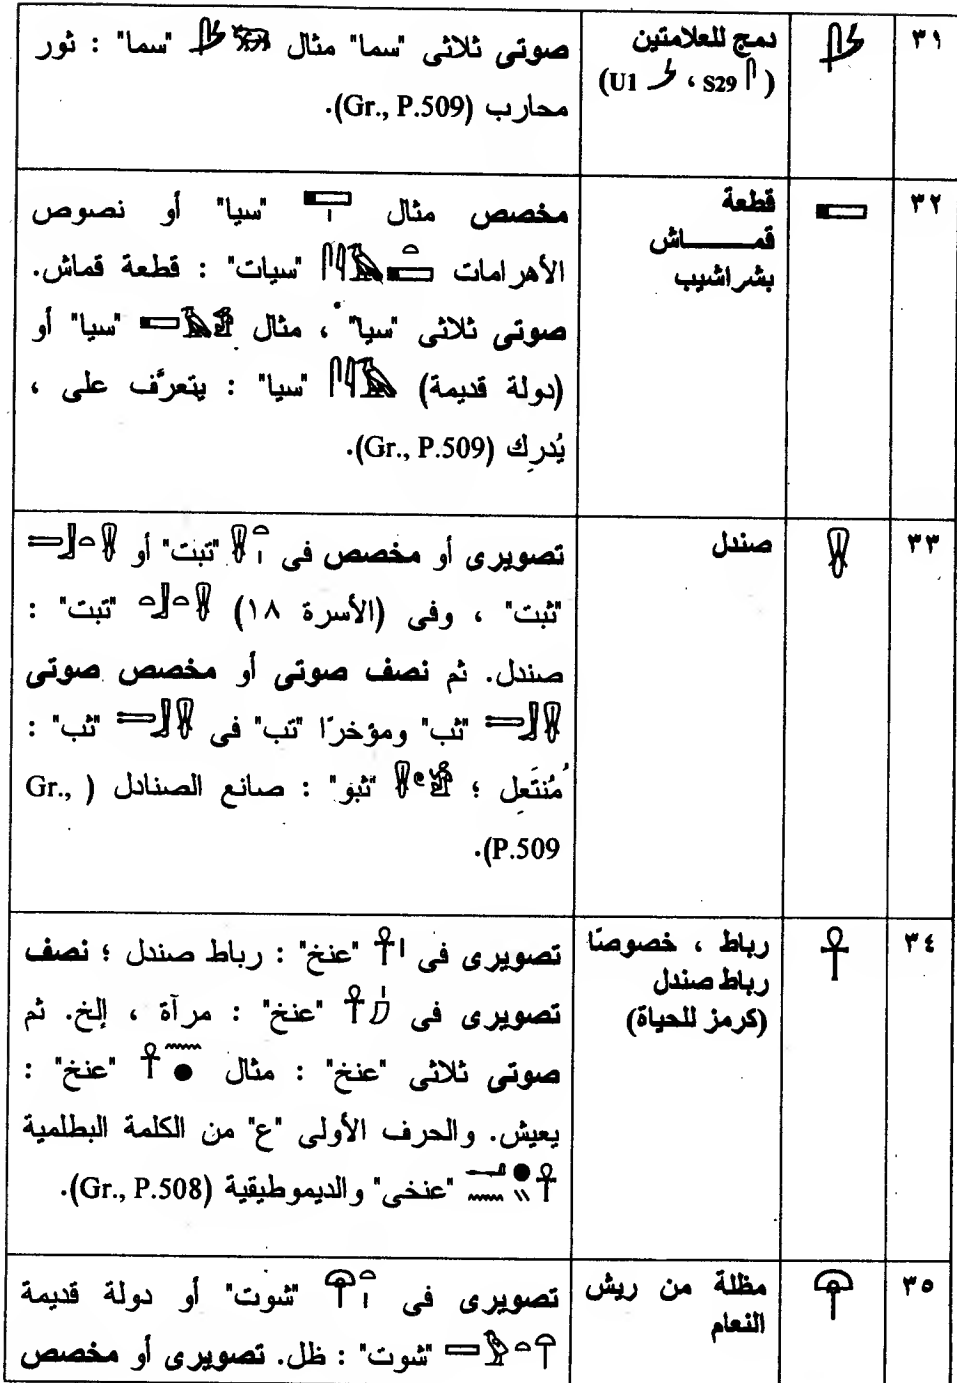 ٣١
دمج للعلامتين
(S29 ، U1)
صوتى ثلاثى "سما" مثال "سما" : ثور
محارب (Gr., P.509).
٣٢
قطعة
قمـــــــاش
بشراشيب
مخصص مثال "سيا" أو نصوص
الأهرامات "سيات" : قطعة قماش.
صوتى ثلاثى "سيا" ، مثال "سيا" أو
(دولة قديمة) "سيا" : يتعرَّف على ،
يُدرِك (Gr., P.509).
٣٣
صندل
تصويرى أو مخصص فى "تبت" أو
"ثبت" ، وفى (الأسرة ١٨) "تبت" :
صندل. ثم نصف صوتى أو مخصص صوتى
"ثب" ومؤخرًا "تب" فى "ثب" :
مُنتَعِل ؛ "ثبو" : صانع الصنادل (Gr.,
P.509).
٣٤
رباط ، خصوصًا
رباط صندل
(كرمز للحياة)
تصويرى فى "عنخ" : رباط صندل ؛ نصف
تصويرى فى "عنخ" : مرآة ، إلخ. ثم
صوتى ثلاثى "عنخ" : مثال "عنخ" :
يعيش. والحرف الأولى "ع" من الكلمة البطلمية
"عنخى" والديموطيقية (Gr., P.508).
٣٥
مظلة من ريش
النعام
تصويرى فى "شوت" أو دولة قديمة
"شوت" : ظل. تصويرى أو مخصص